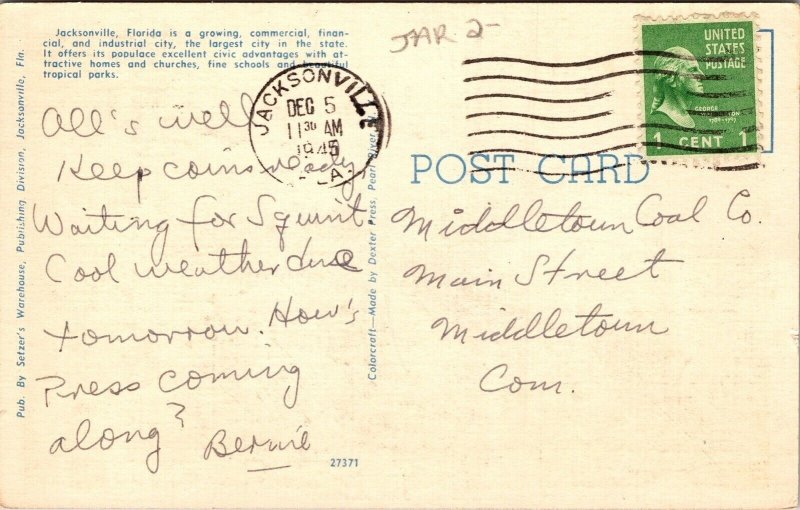 Jacksonville, Florida is a growing, commercial, finan-
cial, and industrial city, the largest city in the state.
It offers its populace excellent civic advantages with at-
tractive homes and churches, fine schools and beautiful
tropical parks.
JAR 2-
JACKSONVILLE
DEC 5
11 30 AM
1945
FLA.
UNITED
STATES
POSTAGE
GEORGE
WASHINGTON
1 CENT 1
POST CARD
All's well
Keep coins ready
Waiting for Squint.
Cool weather due
tomorrow. How's
Press coming
along?
Bernie
Middletown Coal Co.
Main Street
Middletown
Conn.
Pub. By Setzer's Warehouse, Publishing Division, Jacksonville, Fla.
Colorcraft—Made by Dexter Press, Pearl River,
27371